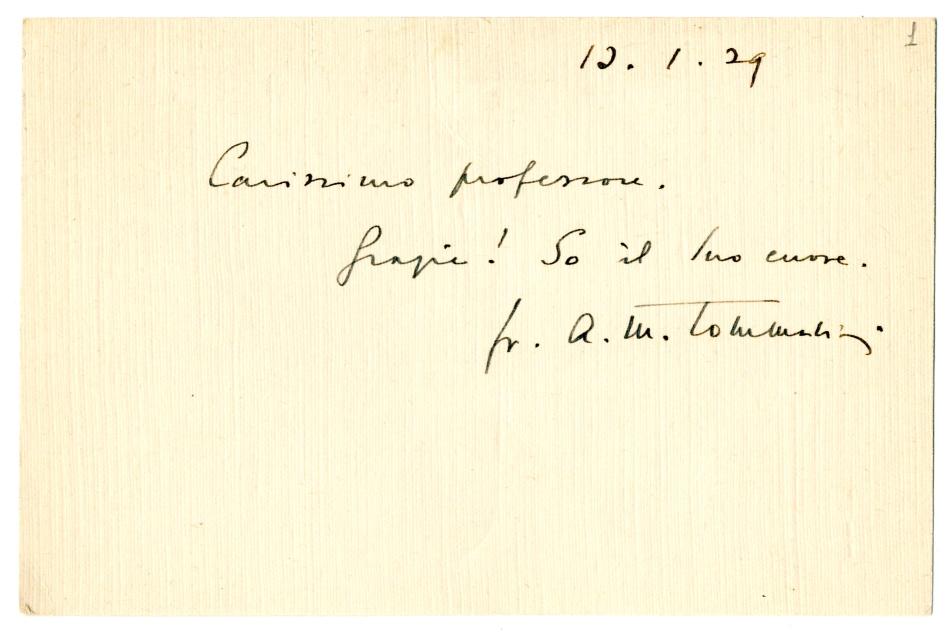 1
12. 1. 29
Carissimo professore.
Grazie! So il tuo cuore.
fr. A. M. Tommasini